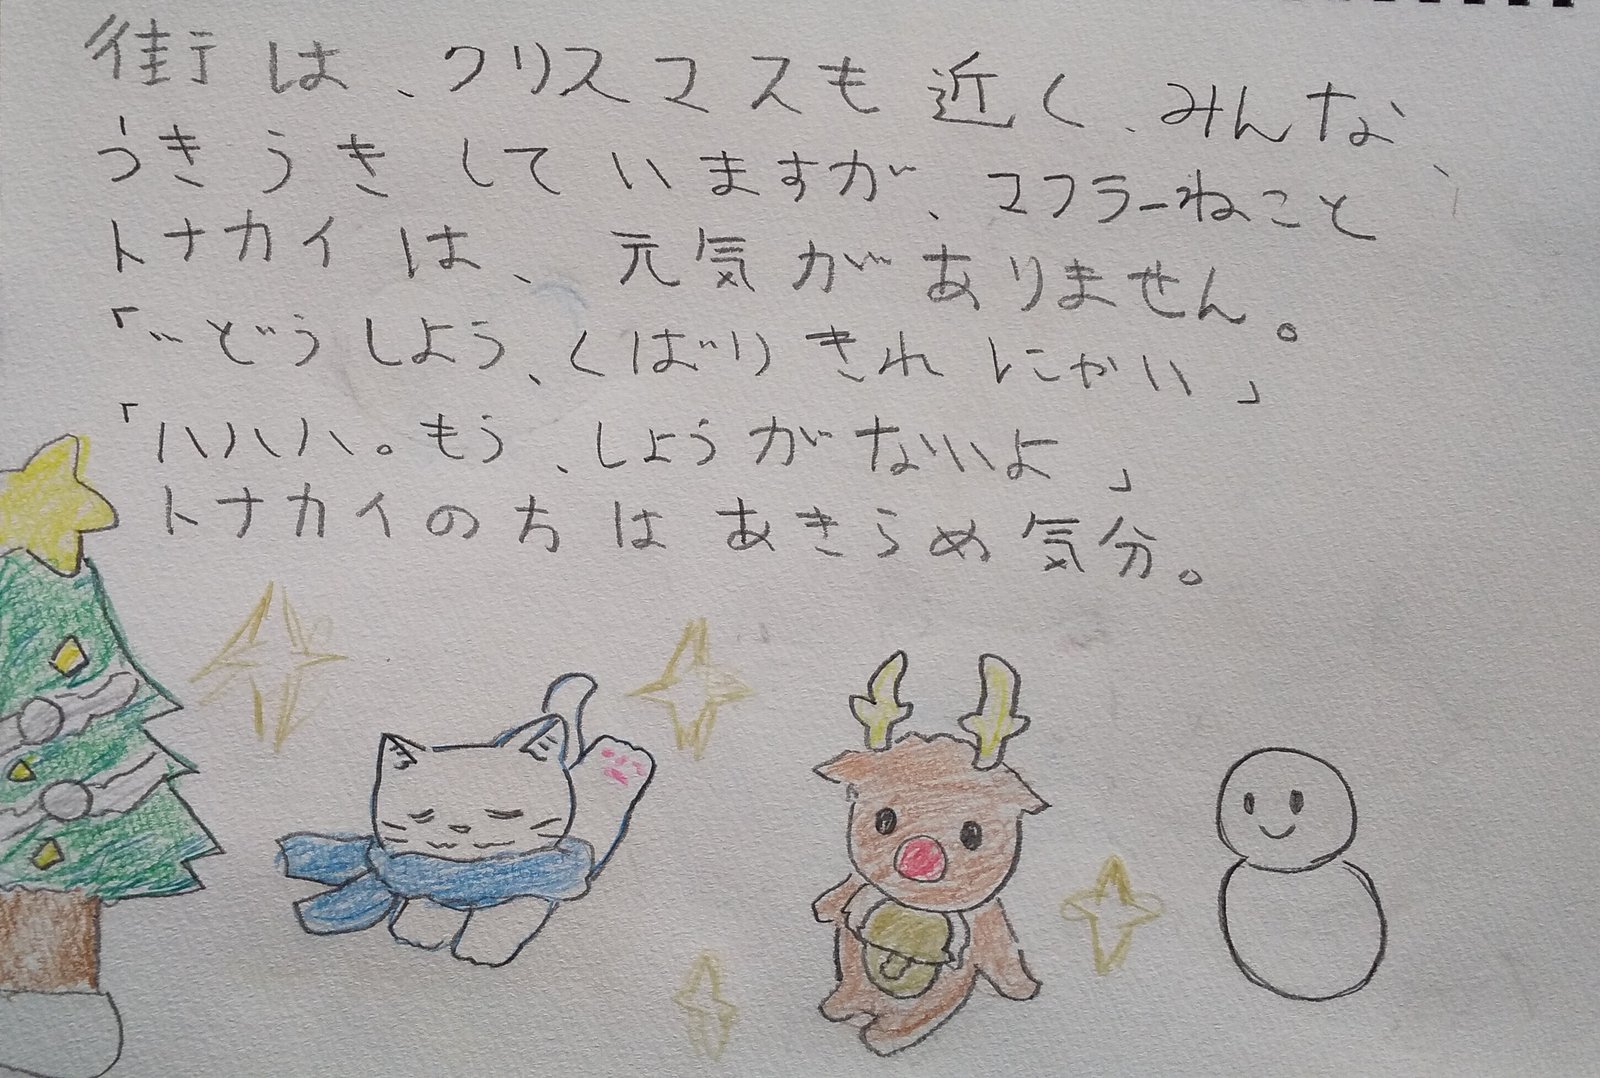 街は、クリスマスも近く、みんな、
うきうきしていますが、マフラーねこと
トナカイは、元気がありません。
「…どうしよう、くばりきれにゃい」
「ハハハ。もう、しょうがないよ」
トナカイの方はあきらめ気分。